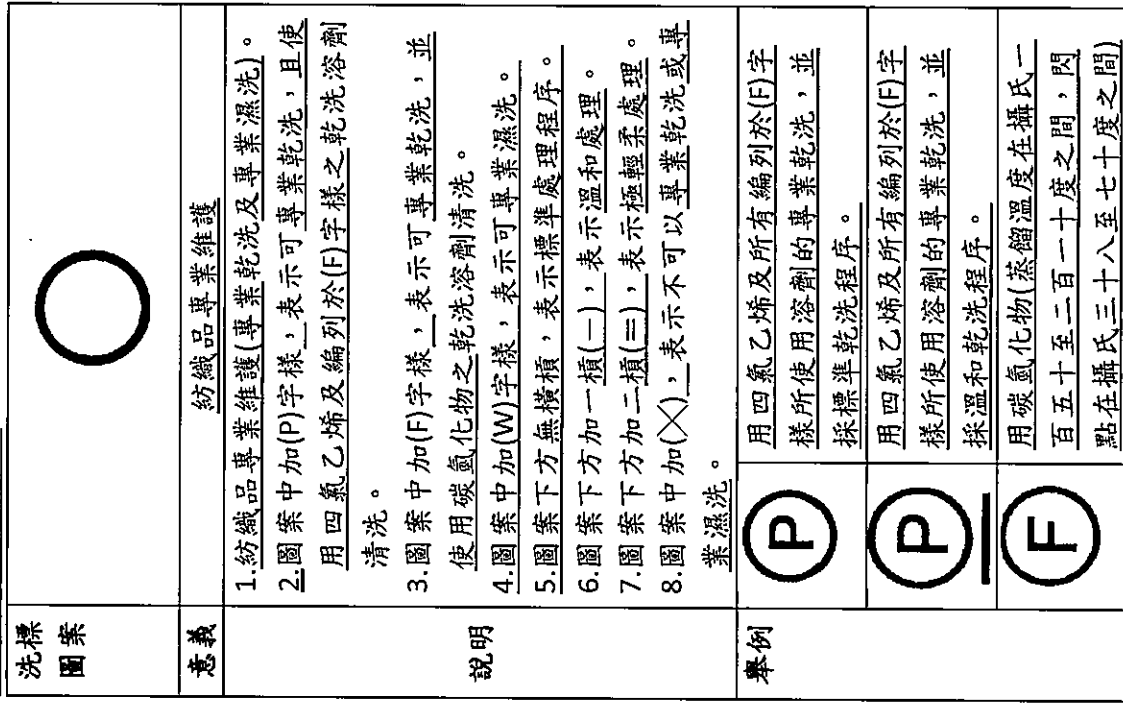 洗標
圖案
意義
紡織品專業維護
說明
1.紡織品專業維護(專業乾洗及專業濕洗)。
2.圖案中加(P)字樣，表示可專業乾洗，且使
用四氯乙烯及編列於(F)字樣之乾洗溶劑
清洗。
3.圖案中加(F)字樣，表示可專業乾洗，並
使用碳氫化物之乾洗溶劑清洗。
4.圖案中加(W)字樣，表示可專業濕洗。
5.圖案下方無橫槓，表示標準處理程序。
6.圖案下方加一槓(—)，表示溫和處理。
7.圖案下方加二槓(=)，表示極輕柔處理。
8.圖案中加(╳)，表示不可以專業乾洗或專
業濕洗。
舉例
P
用四氯乙烯及所有編列於(F)字
樣所使用溶劑的專業乾洗，並
採標準乾洗程序。
P
用四氯乙烯及所有編列於(F)字
樣所使用溶劑的專業乾洗，並
採溫和乾洗程序。
F
用碳氫化物(蒸餾溫度在攝氏一
百五十至二百一十度之間，閃
點在攝氏三十八至七十度之間)